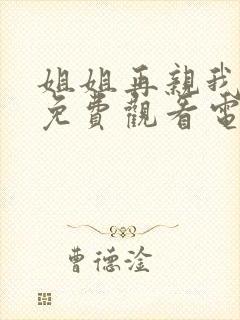 姐姐再親我
免費觀看電
曹德淦